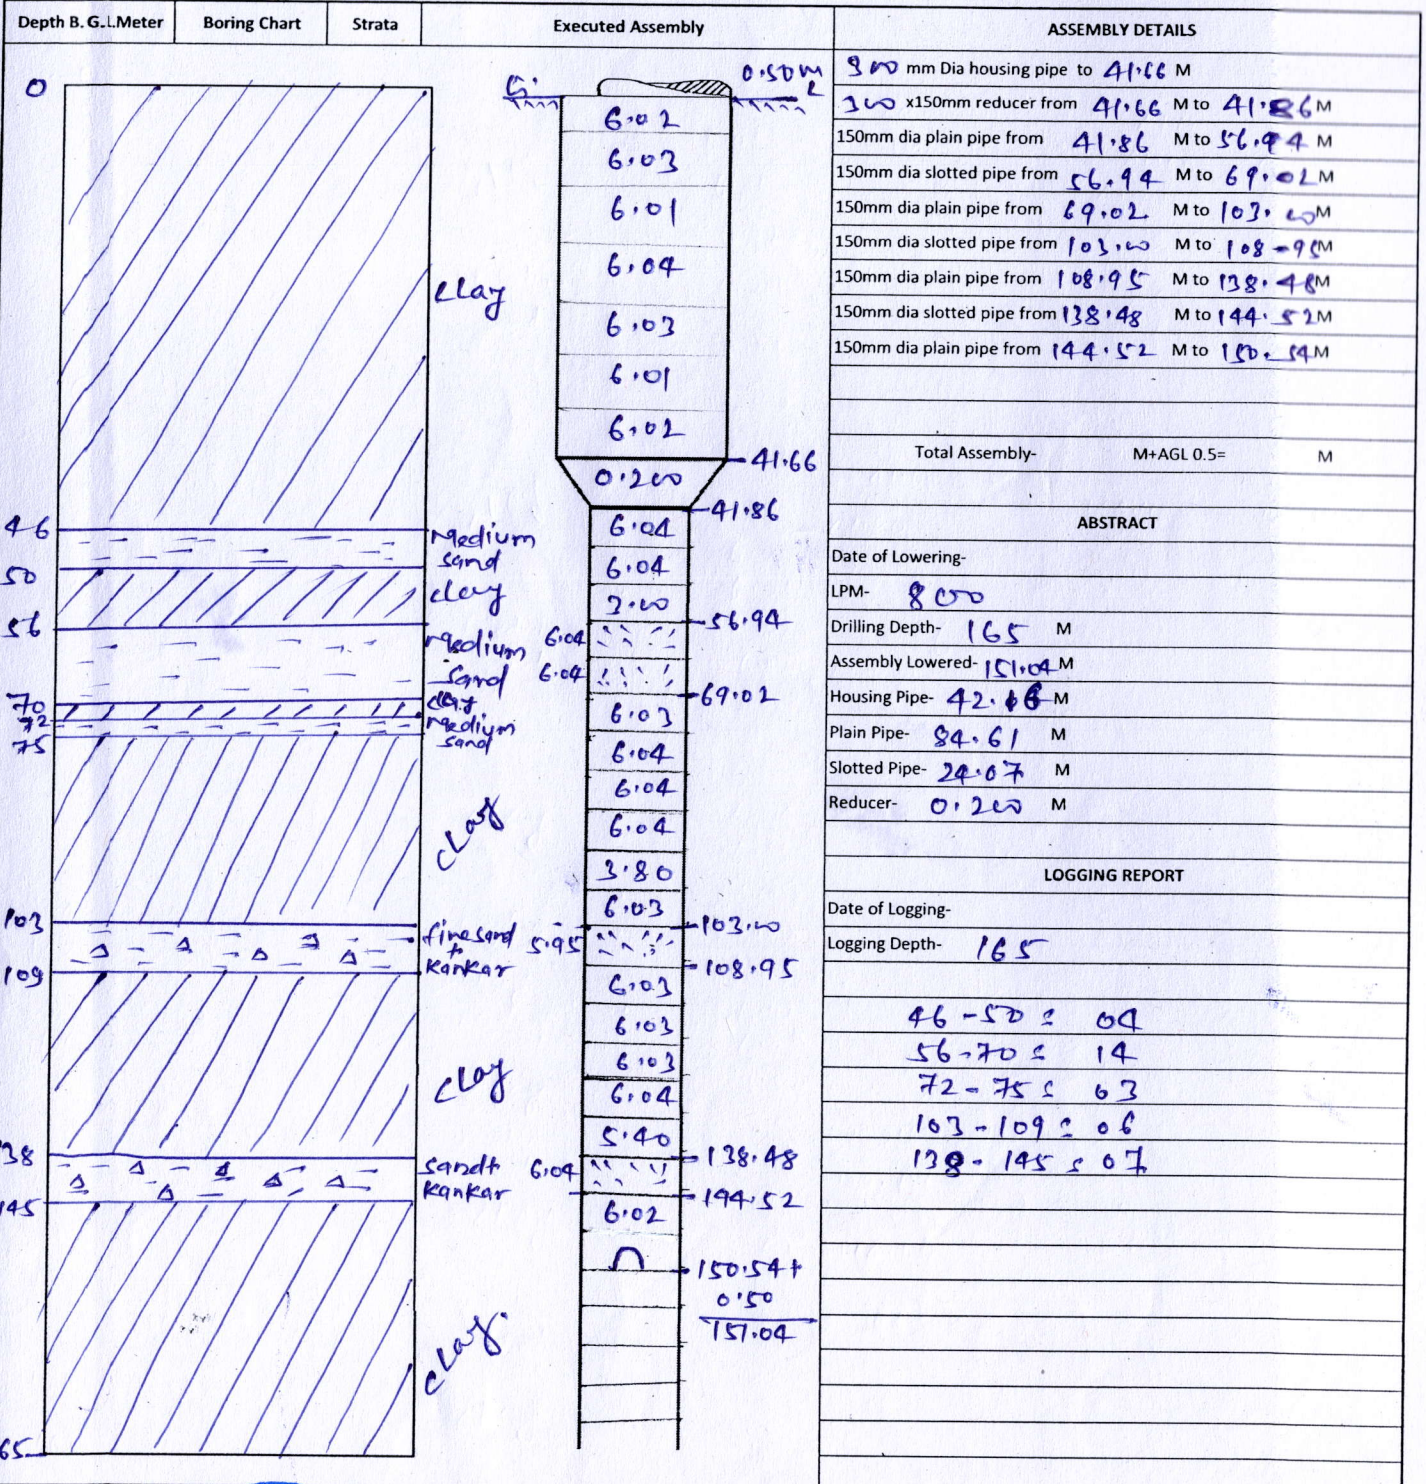 Depth B. G.L.Meter Boring Chart Strata Executed Assembly ASSEMBLY DETAILS
0
46
50
56
70
72
75
103
109
138
145
65
clay
Medium
sand
clay
Medium
Sand
clay
Medium
sand
clay
fine sand
+
Kankar
clay
sand+
Kankar
clay.
G. 0.50m
L
6.02
6.03
6.01
6.04
6.03
6.01
6.02
41.66
0.200
41.86
6.04
6.04
3.00
56.94
6.04
6.04
69.02
6.03
6.04
6.04
6.04
3.80
6.03
103.00
5.95
108.95
6.03
6.03
6.03
6.04
5.40
138.48
6.04
144.52
6.02
150.54+
0.50
151.04
300 mm Dia housing pipe to 41.66 M
300 x150mm reducer from 41.66 M to 41.86 M
150mm dia plain pipe from 41.86 M to 56.94 M
150mm dia slotted pipe from 56.94 M to 69.02 M
150mm dia plain pipe from 69.02 M to 103.00 M
150mm dia slotted pipe from 103.00 M to 108-95 M
150mm dia plain pipe from 108.95 M to 138.48 M
150mm dia slotted pipe from 138.48 M to 144.52 M
150mm dia plain pipe from 144.52 M to 150.54 M
Total Assembly- M+AGL 0.5= M
ABSTRACT
Date of Lowering-
LPM- 800
Drilling Depth- 165 M
Assembly Lowered- 151.04 M
Housing Pipe- 42.16 M
Plain Pipe- 84.61 M
Slotted Pipe- 24.07 M
Reducer- 0.200 M
LOGGING REPORT
Date of Logging-
Logging Depth- 165
46-50 = 04
56-70 = 14
72-75 = 03
103-109 = 06
138-145 = 07